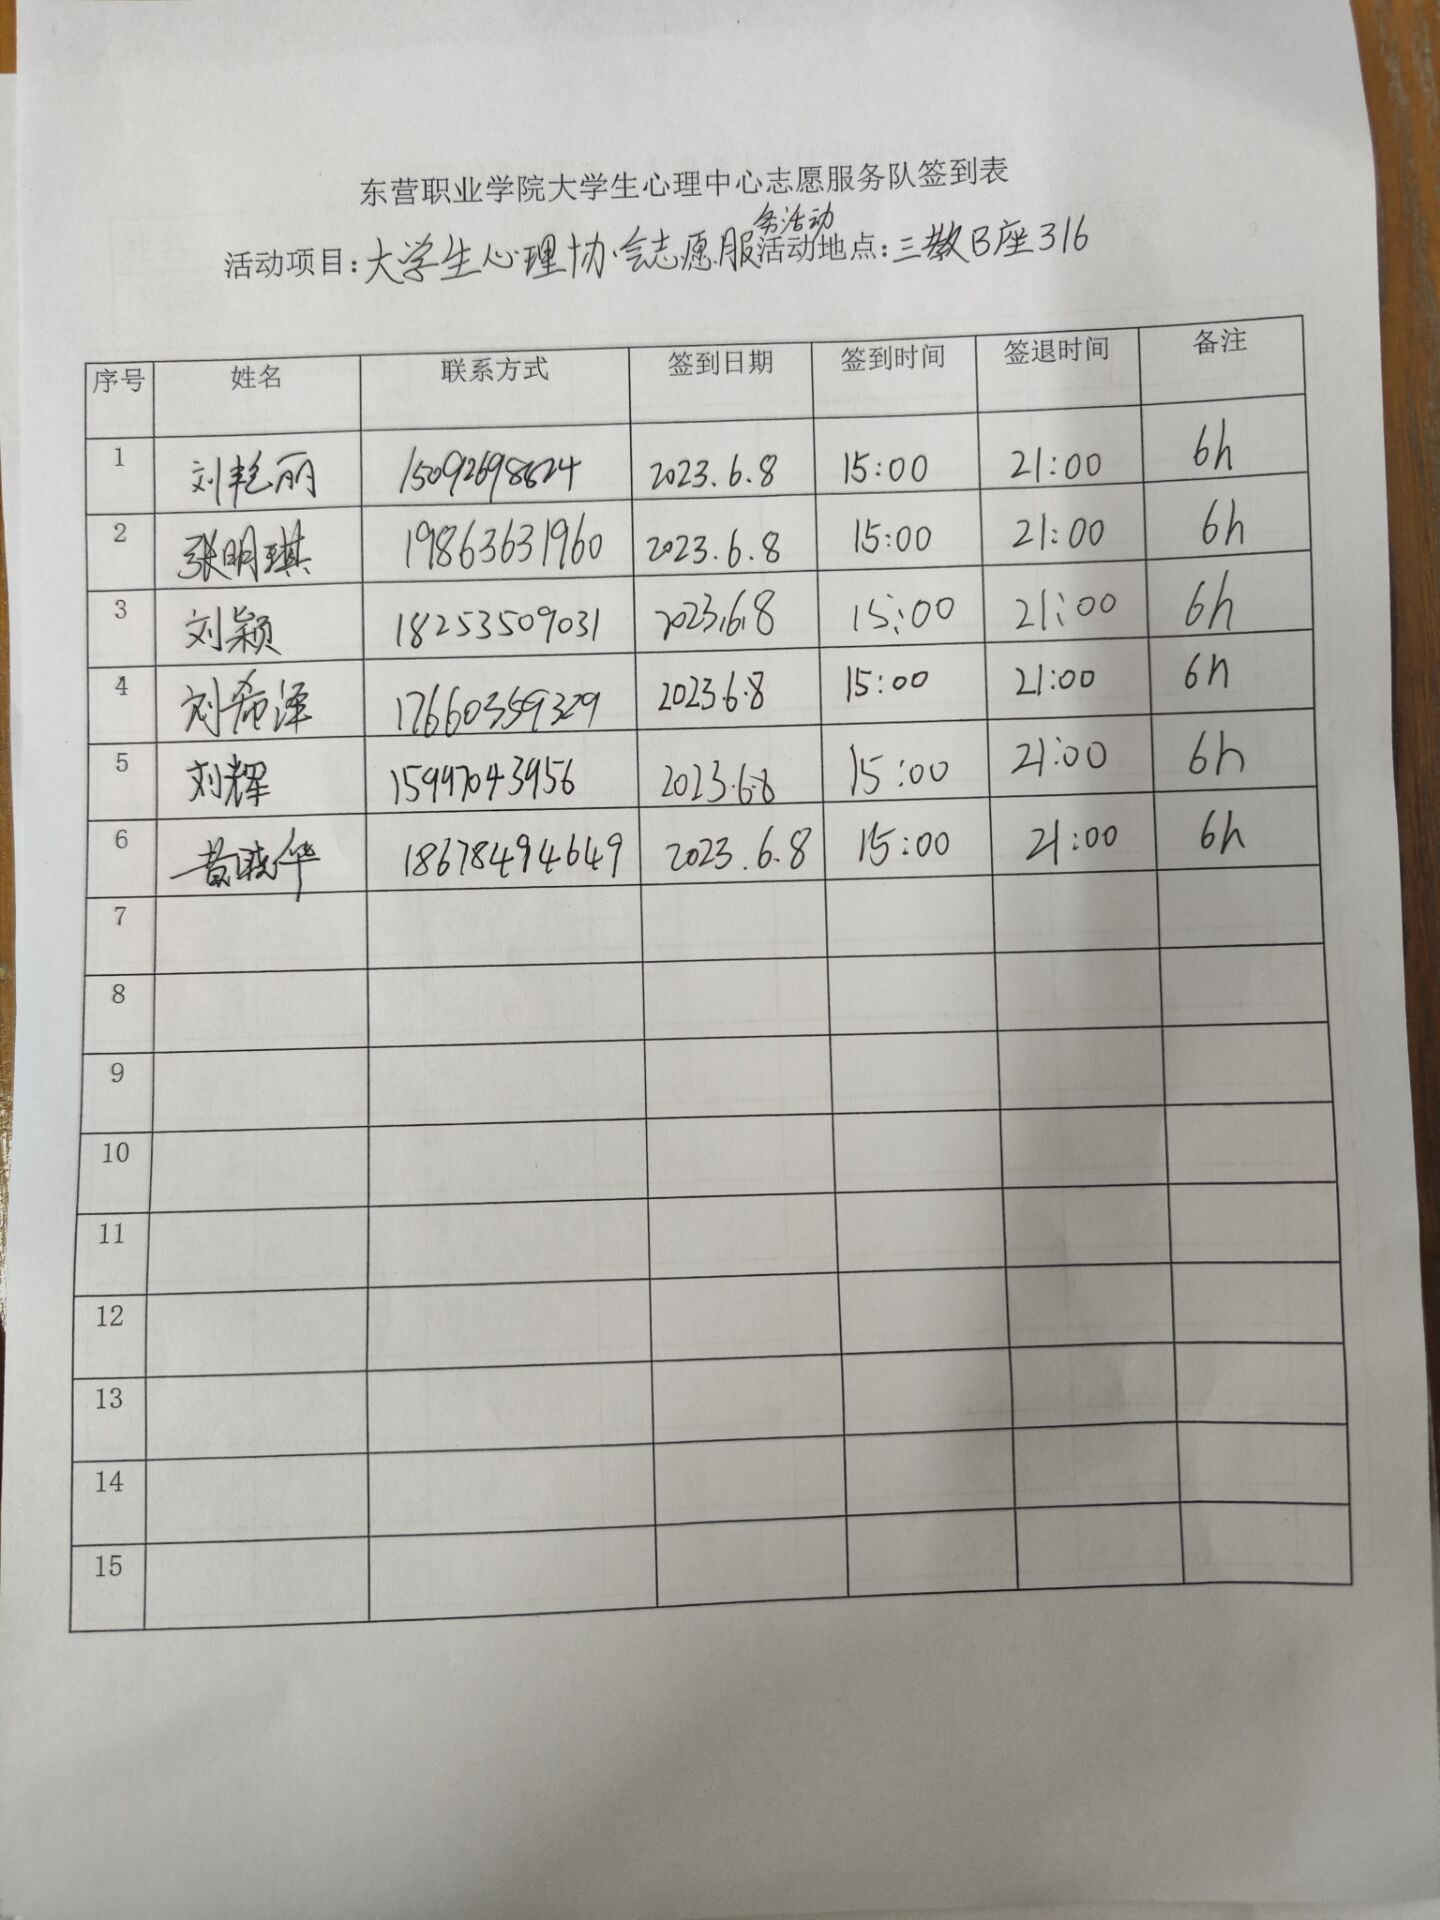 东营职业学院大学生心理中心志愿服务队签到表
活动项目:大学生心理协会志愿服务活动 活动地点:三教B座316
序号 姓名 联系方式 签到日期 签到时间 签退时间 备注
1 刘艳丽 15092698824 2023.6.8 15:00 21:00 6h
2 张明琪 19863631960 2023.6.8 15:00 21:00 6h
3 刘颖 18253509031 2023.6.8 15:00 21:00 6h
4 刘希泽 17660359329 2023.6.8 15:00 21:00 6h
5 刘辉 15997043956 2023.6.8 15:00 21:00 6h
6 18678494649 2023.6.8 15:00 21:00 6h
7
8
9
10
11
12
13
14
15